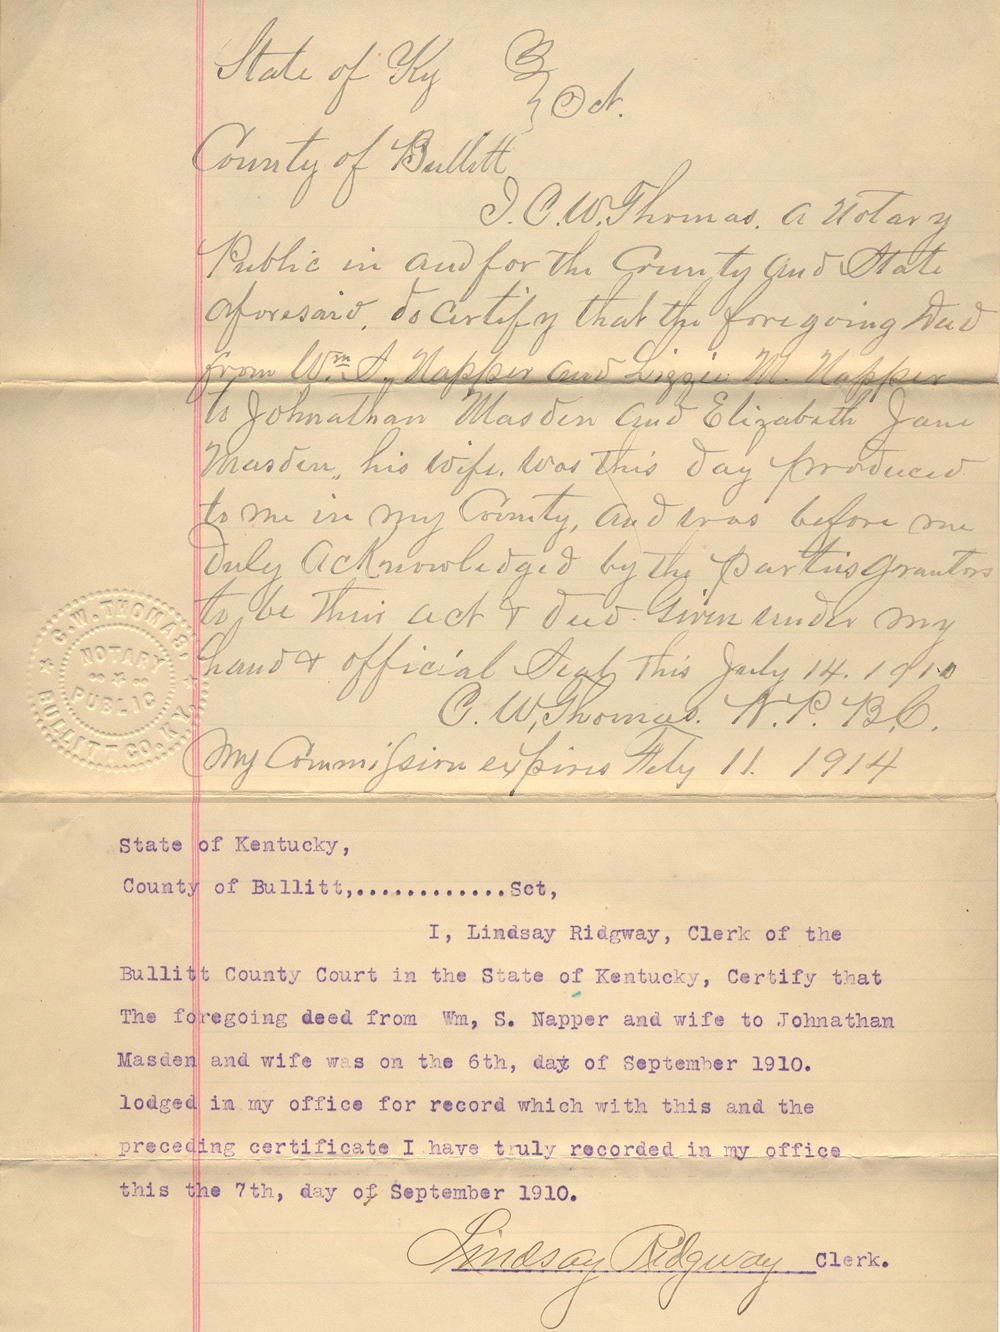 State of Ky
Sct.
County of Bullitt
I. C. W. Thomas. a Notary
Public in and for the County and State
aforesaid, do certify that the foregoing Deed
from Wm. S. Napper and Lizzie M. Napper
to Johnathan Masden and Elizabeth Jane
Masden, his wife. was this day produced
to me in my County, and was before me
duly acknowledged by the parties grantors
to be their act & deed. Given under my
hand & official Seal this July 14. 1910
C. W. Thomas. N. P. B. C.
My Commission expires Feby 11. 1914
C. W. THOMAS,
NOTARY
PUBLIC
BULLITT CO. KY.
State of Kentucky,
County of Bullitt,............Sct,
I, Lindsay Ridgway, Clerk of the
Bullitt County Court in the State of Kentucky, Certify that
The foregoing deed from Wm, S. Napper and wife to Johnathan
Masden and wife was on the 6th, day of September 1910.
lodged in my office for record which with this and the
preceding certificate I have truly recorded in my office
this the 7th, day of September 1910.
Lindsay Ridgway Clerk.